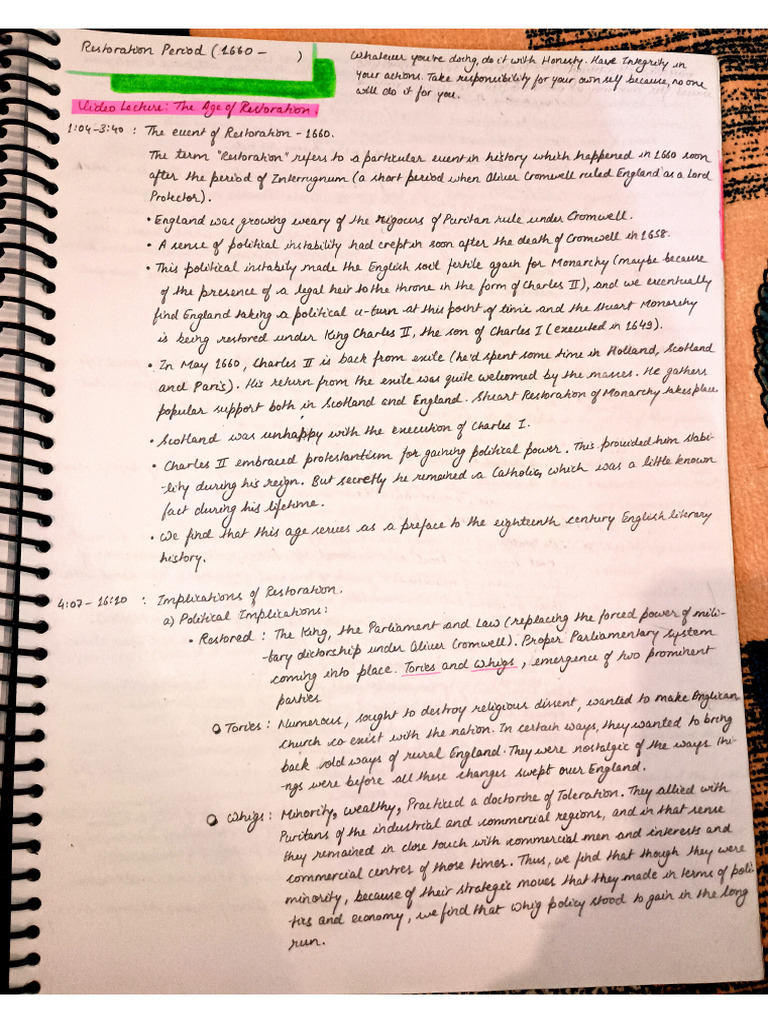 Restoration Period (1660 -      )
Whatever you're doing, do it with Honesty. Have Integrity in
your actions. Take responsibility for your own self because, no one
will do it for you.
Video Lecture: The Age of Restoration.
1:04-3:40 : The event of Restoration - 1660.
The term "Restoration" refers to a particular event in history which happened in 1660 soon
after the period of Interrugnum (a short period when Oliver Cromwell ruled England as a Lord
Protector).
• England was growing weary of the rigours of Puritan rule under Cromwell.
• A sense of political instability had crept in soon after the death of Cromwell in 1658.
• This political instabity made the English soil fertile again for Monarchy (maybe because
of the presence of a legal heir to the throne in the form of Charles II), and we eventually
find England taking a political u-turn at this point of time and the Stuart Monarchy
is being restored under King Charles II, the son of Charles I (executed in 1649).
• In May 1660, Charles II is back from exile (he'd spent some time in Holland, Scotland
and Paris). His return from the exile was quite welcomed by the masses. He gathers
popular support both in Scotland and England. Stuart Restoration of Monarchy takes place
• Scotland was unhappy with the execution of Charles I.
• Charles II embraced protestantism for gaining political power. This provided him stabi-
-lity during his reign. But secretly he remained a Catholic, which was a little known
fact during his lifetime.
• We find that this age serves as a preface to the eighteenth century English literary
history.
4:07-16:20 : Implications of Restoration.
a) Political Implications:
• Restored : The King, the Parliament and Law (replacing the forced power of mili-
-tary dictorship under Oliver Cromwell). Proper Parliamentary system
coming into place. Tories and Whigs, emergence of two prominent
parties
Tories : Numerous, sought to destroy religious dissent, wanted to make Anglican
church co exist with the nation. In certain ways, they wanted to bring
back old ways of rural England. They were nostalgic of the ways thi-
-ngs were before all these changes swept over England.
Whigs : Minority, wealthy, Practiced a doctorine of Toleration. They allied with
Puritans of the industrial and commercial regions, and in that sense
they remained in close touch with commercial men and interests and
commercial centres of those times. Thus, we find that though they were
minority, because of their strategic moves that they made in terms of poli
-tics and economy, we find that Whig policy stood to gain in the long
run.